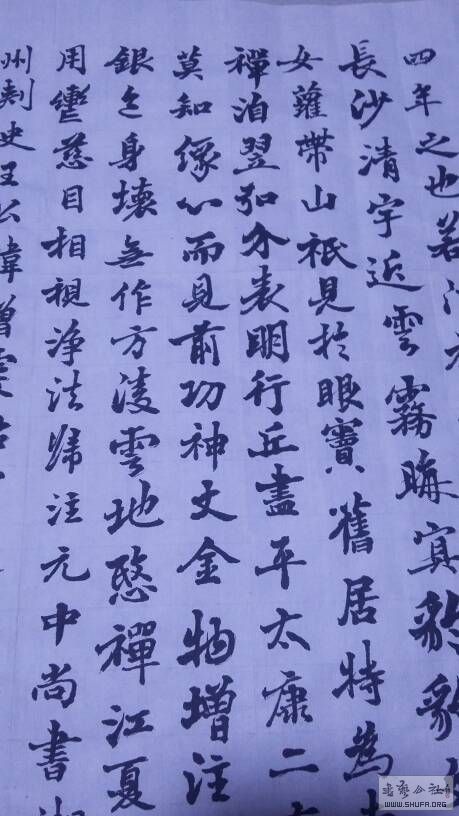 四年之也若
長沙清宇近雲霧晦冥
女蘿帶山祇見於眼寶舊居特為
禪泊翌弘分表明行丘盡平太康二
莫知像心而見前功神丈金物增注
銀色身壞無作方淩雲地愍禪江夏
用慈目相視淨法歸注元中尚書
州刺史王公諱僧虔
书艺公社
WWW.SHUFA.ORG